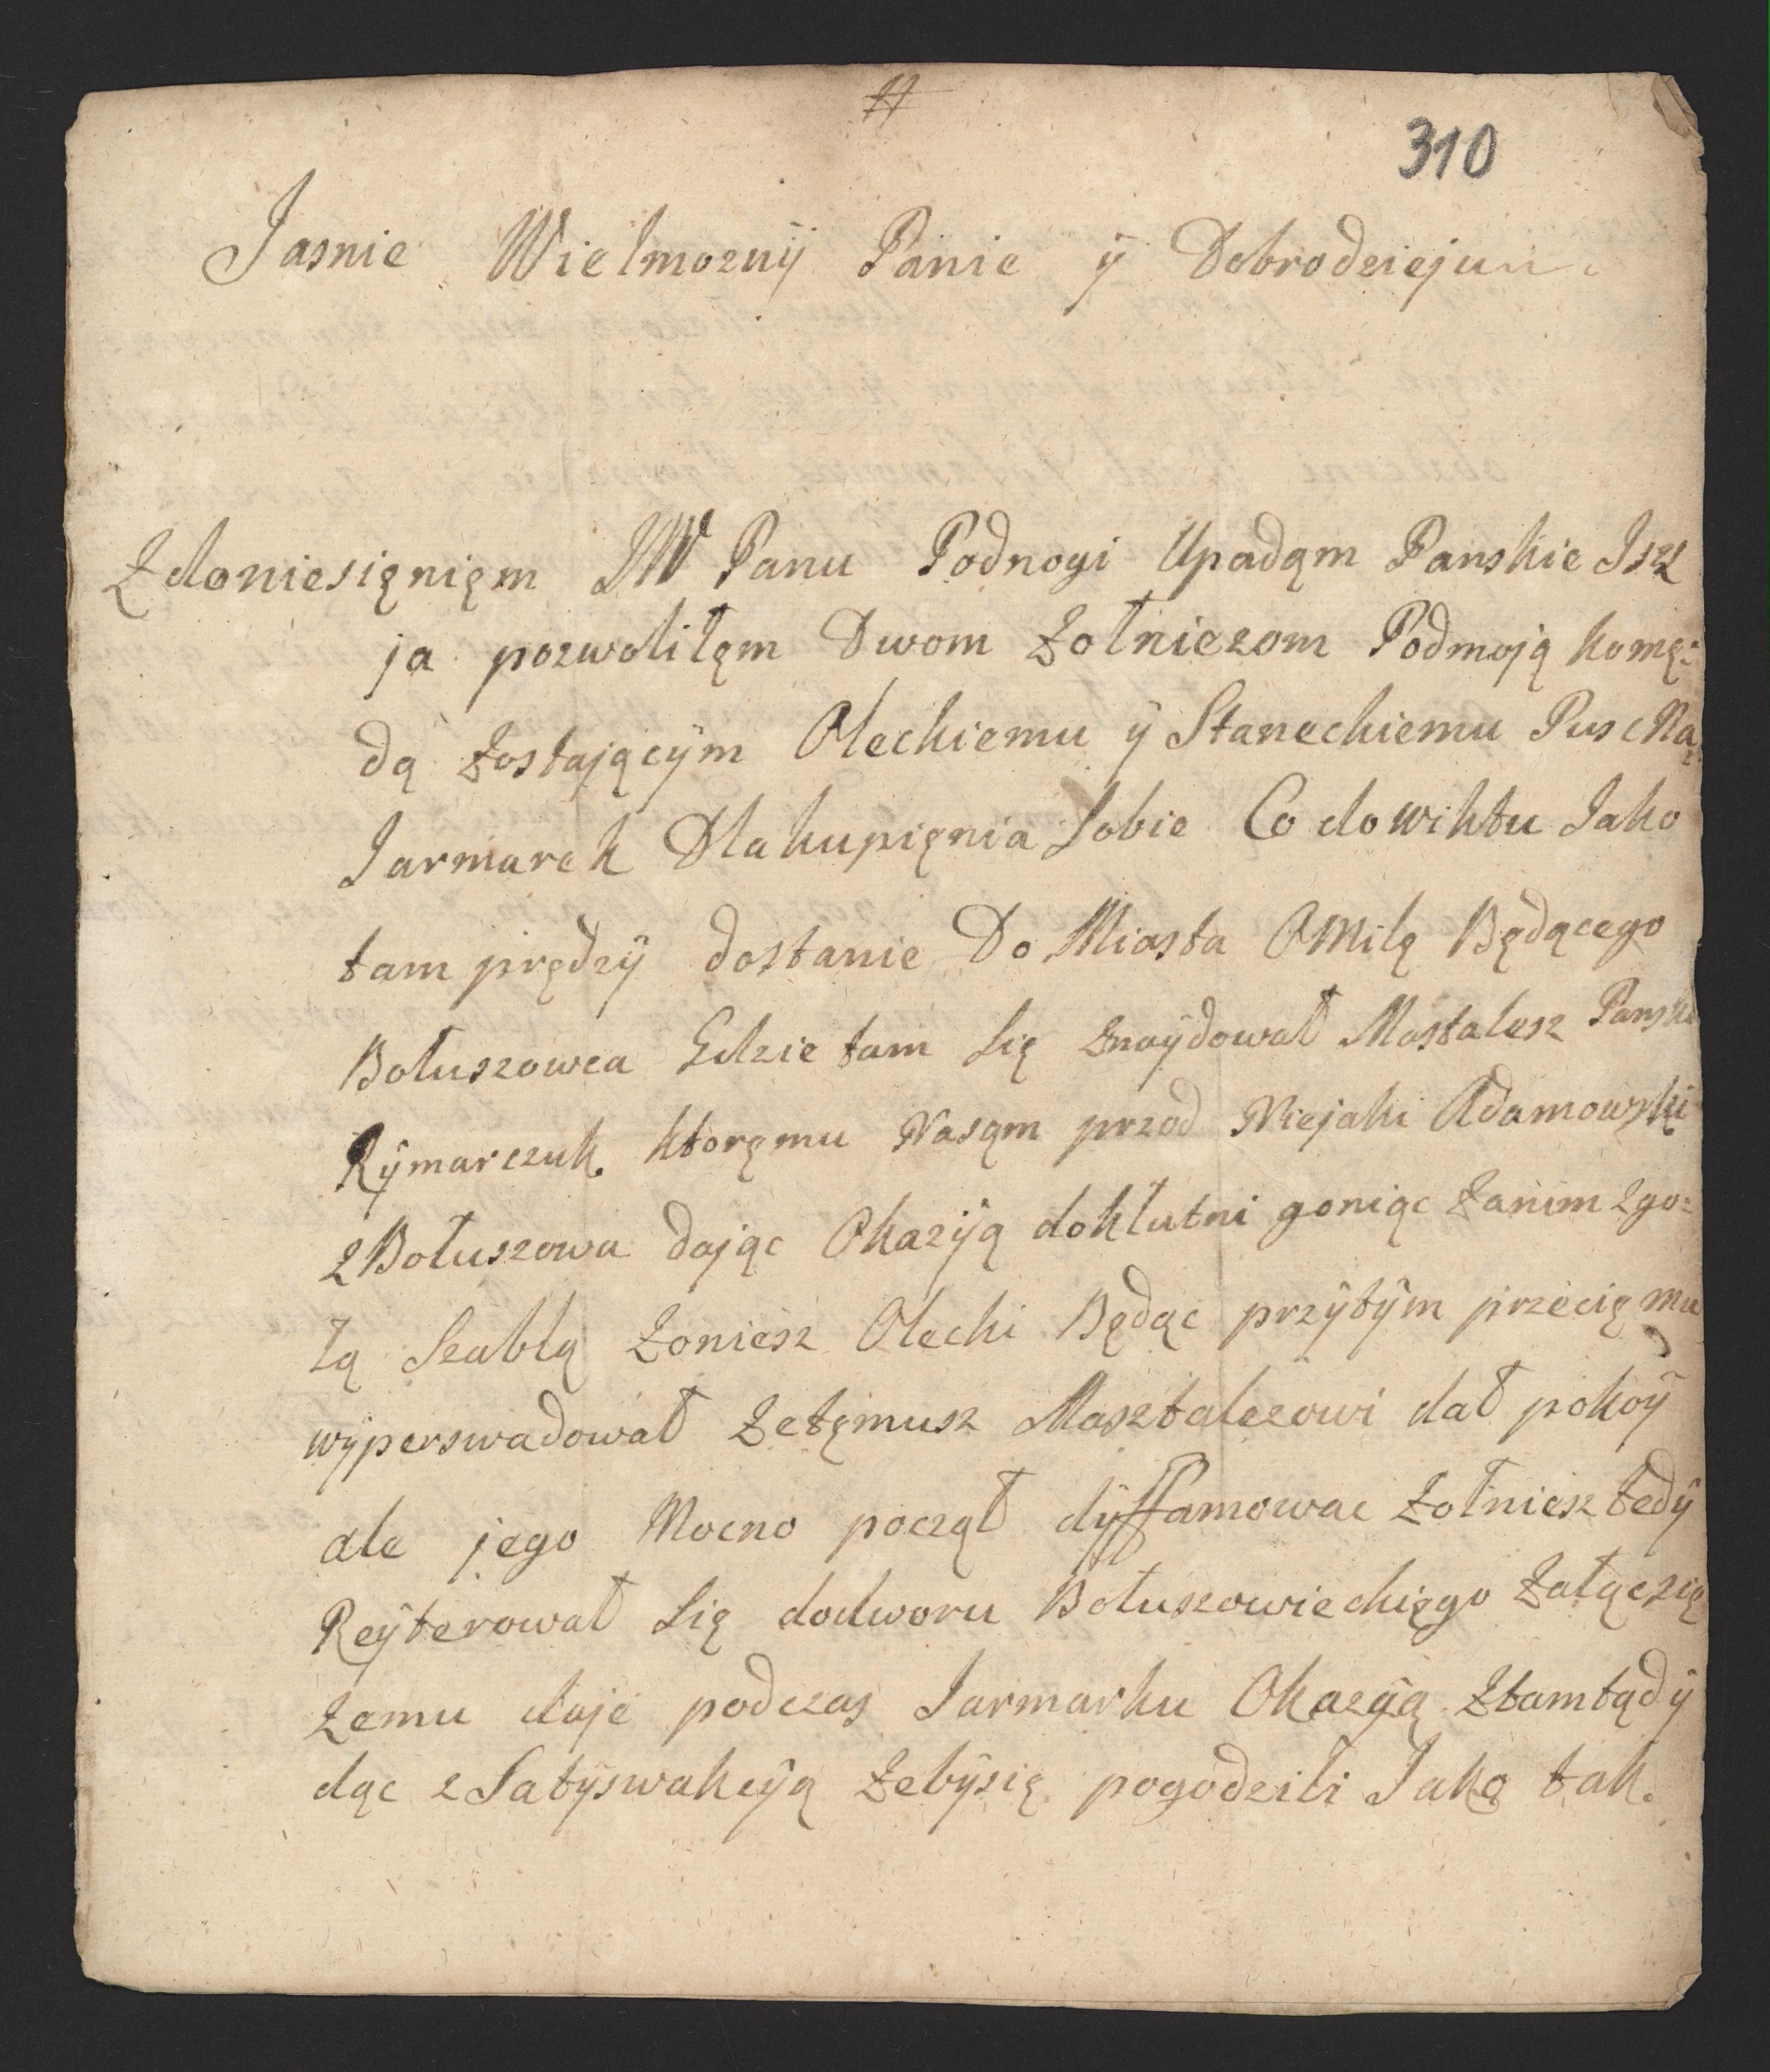 310
Jasnie Wielmozny Panie ÿ Dobrodzieju
Zdoniesięnięm JW Panu Podnogi Upadąm Panskie Jsz
ja pozwoliłęm Dwom Zołniezom Podmoją komę:
dą Zostającÿm Oleckiemu ÿ Staneckiemu Pusc Na
Jarmarek Dla kupięnia Sobie Co do wiktu Jako
tam prędzÿ dostanie Do Miasta O Milę Będącego
Bołuszowca Gdzie tam Się Znaÿdował Mastalesz Panski
Rÿmarczuk. ktoręmu Nasąm przod Niejaki Adamowski
z Bołuszowa dając Okazÿą dokłutni goniąc Zanim z go=
łą Szablą Zoniesz Olecki Będąc przÿtÿm przecię mu
wÿperswadował Zetęmusz Masztalezowi dał pokoÿ
ale jego Mocno począł dÿffamowac Zołniesz tedÿ
Reÿterował Się dodworu Bołuszowieckięgo Załączią
Zemu daje podczas Jarmarku Okazÿą Ztamtądÿ
dąc z Satÿswakcÿą Zebÿsię pogodzili Jako tak.